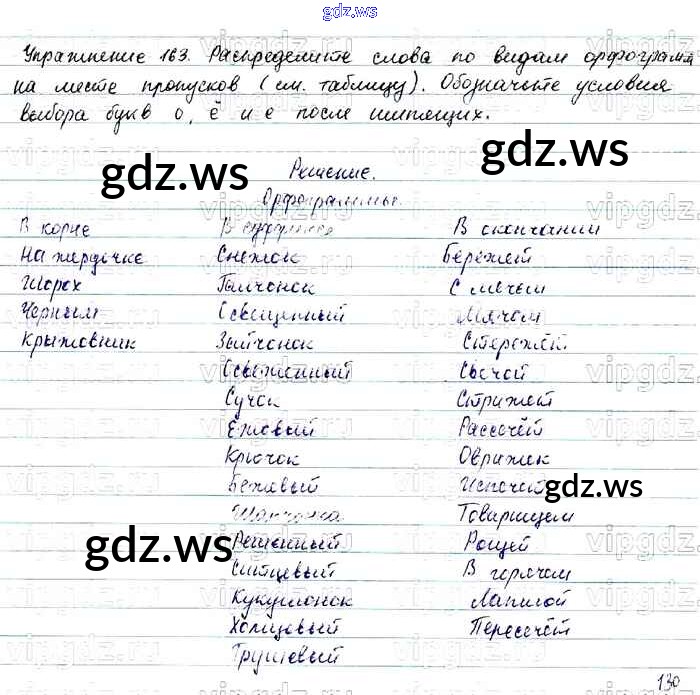 gdz.ws
Упражнение 163. Распределите слова по видам орфограмм
на месте пропусков (см. таблицу). Обозначьте условия
выбора букв о, ё и е после шипящих.
gdz.ws
gdz.ws
Решение.
Орфограммы.
В корне В суффиксе В окончании
На жердочке Снежок Бережёт
Шорох Галчонок С мечом
Черным Освещенный Мячом
Крыжовник Зайчонок Стережёт
Освеженный Свечой
Сучок Стрижёт
Ежовый Рассечёт
Крючок Овражек
Бежевый Испечёт
gdz.ws
Товарищем
gdz.ws
Решенный Рощей
Ситцевый В горячем
Кукушонок Лапшой
Холщовый Пересечёт
Грушевый
130